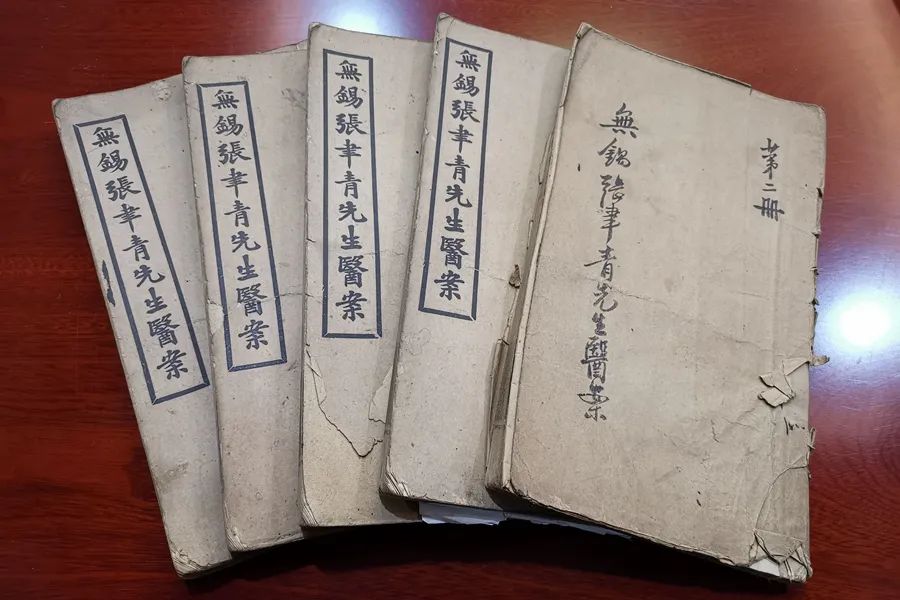 無錫張聿青先生醫案
無錫張聿青先生醫案
無錫張聿青先生醫案
無錫張聿青先生醫案
第二冊
無錫張聿青先生醫案